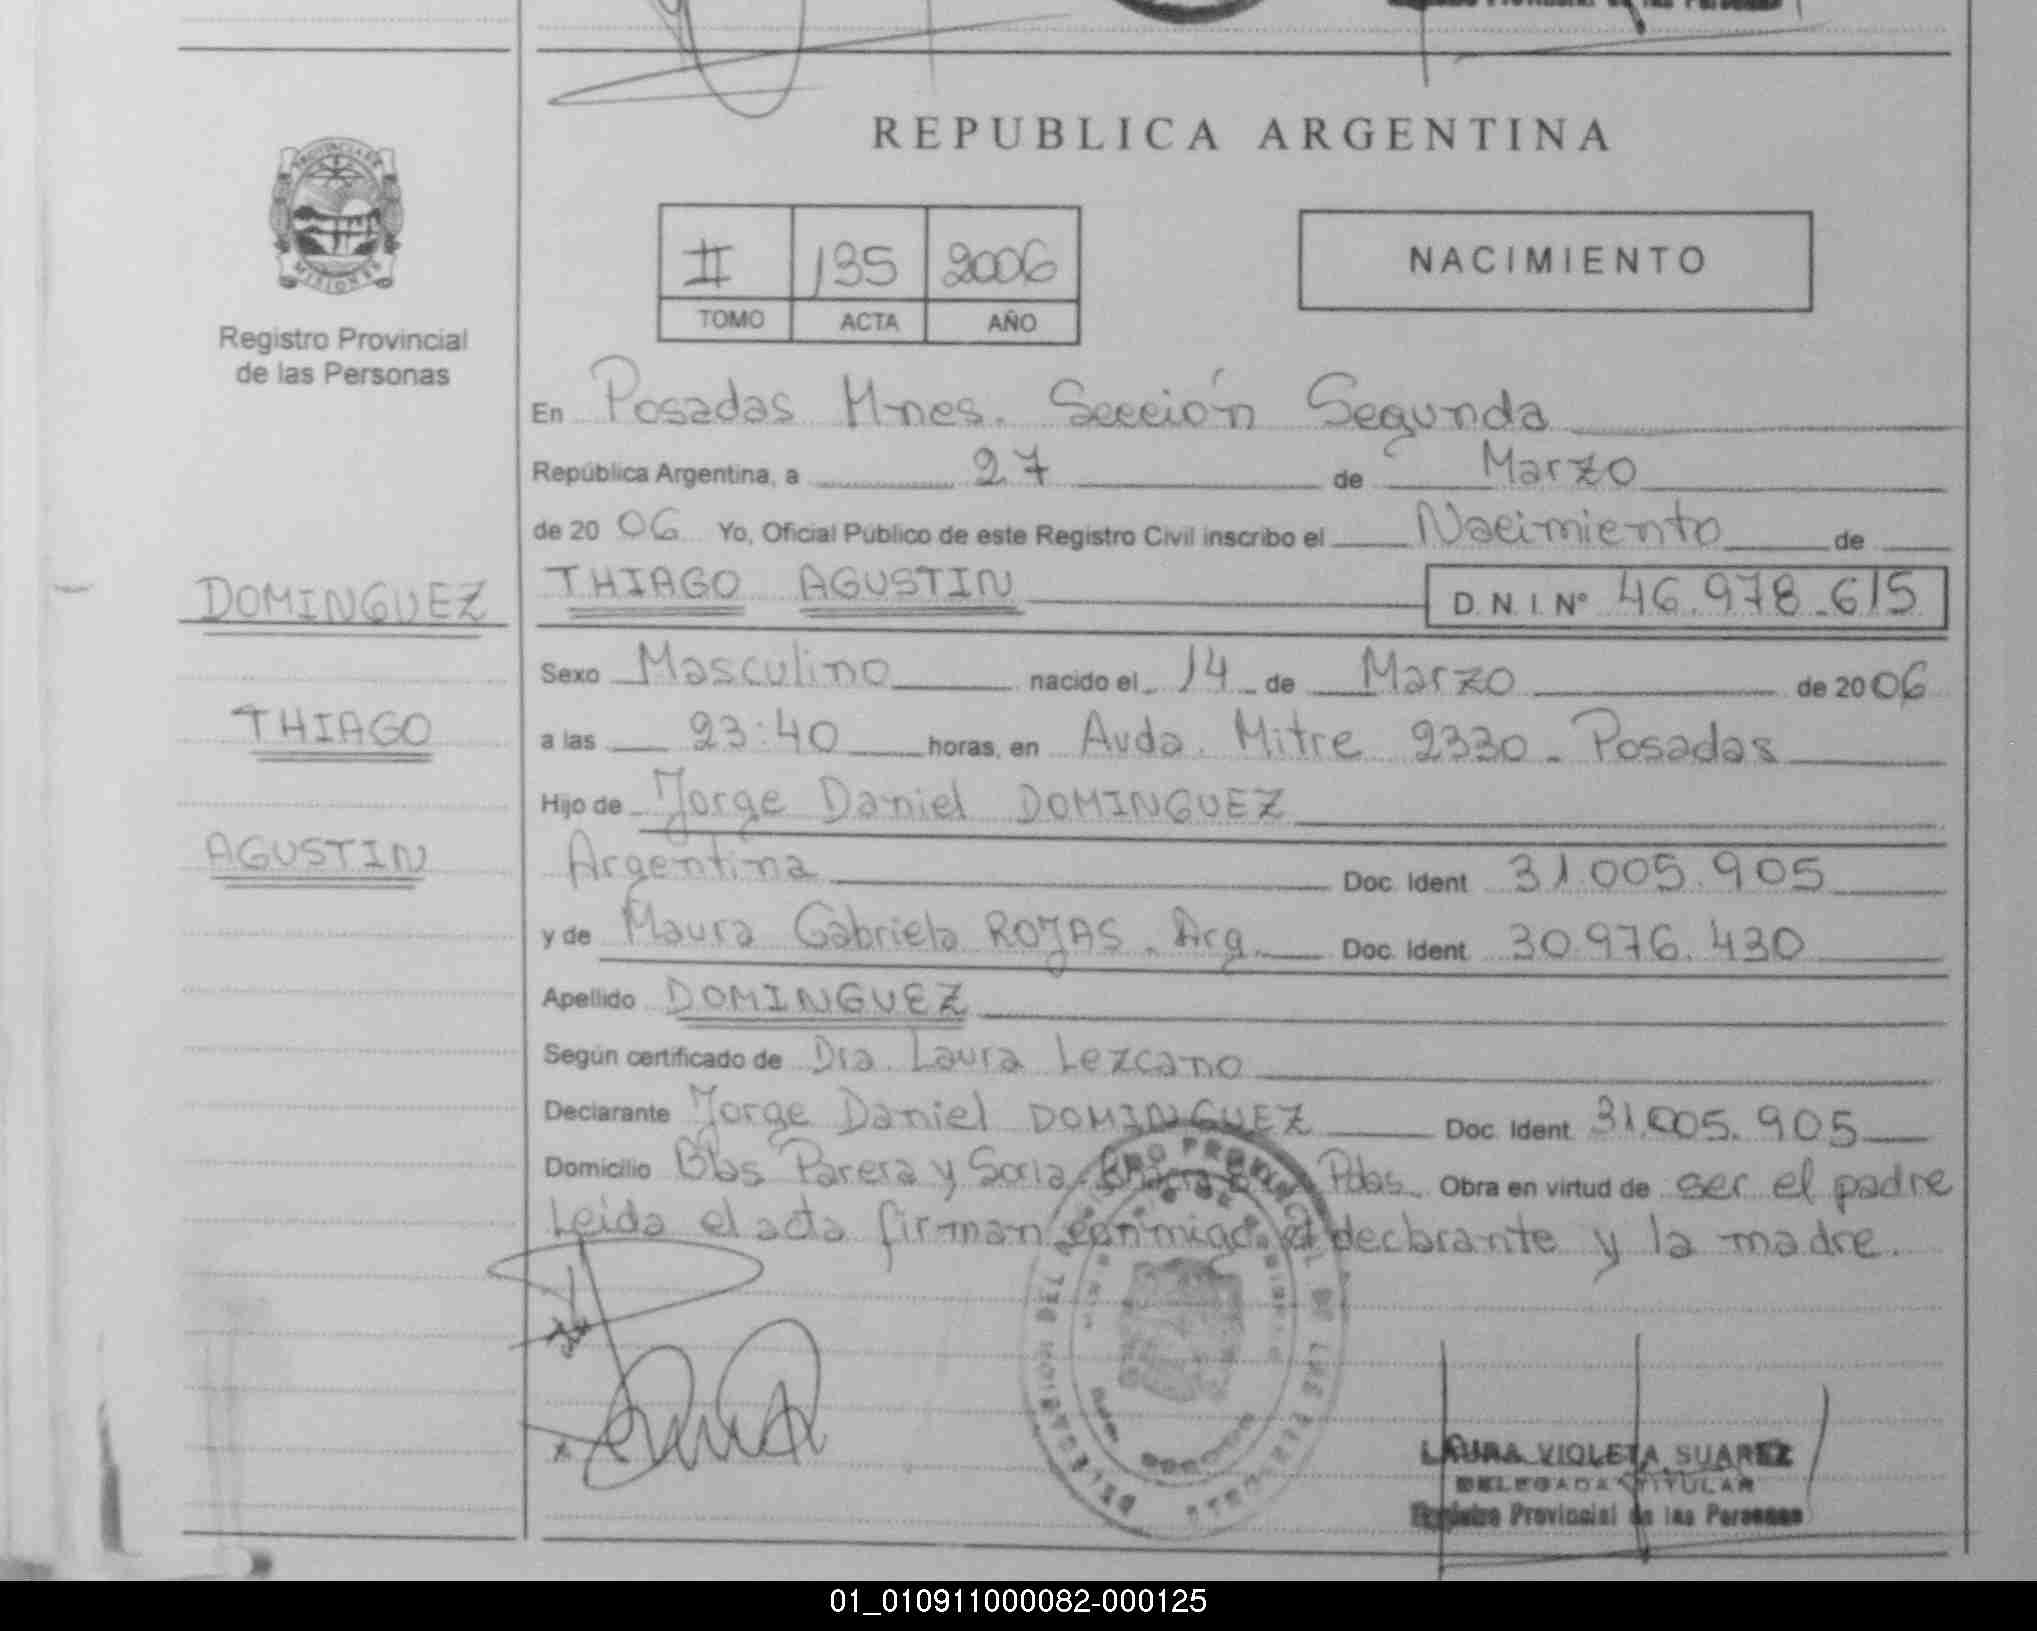 REPUBLICA ARGENTINA
PROVINCIA DE
MISIONES
Registro Provincial
de las Personas
II 135 2006
TOMO ACTA AÑO
NACIMIENTO
En Posadas Mnes. Sección Segunda
República Argentina, a 27 de Marzo
de 20 06 Yo, Oficial Público de este Registro Civil inscribo el Nacimiento de
DOMINGUEZ
THIAGO AGUSTIN D.N.I. Nº 46.978.615
Sexo Masculino nacido el 14 de Marzo de 2006
THIAGO
a las 23:40 horas, en Avda. Mitre 2330 - Posadas
Hijo de Jorge Daniel DOMINGUEZ
AGUSTIN
Argentina Doc. Ident 31.005.905
y de Maura Gabriela ROJAS. Arg. Doc. Ident 30.976.430
Apellido DOMINGUEZ
Según certificado de Dra. Laura Lezcano
Declarante Jorge Daniel DOMINGUEZ Doc. Ident 31.005.905
Domicilio Blas Parera y Soria Pdas. Obra en virtud de ser el padre
Leida el acta firman conmigo el declarante y la madre.
LAURA VIOLETA SUAREZ
DELEGADA TITULAR
Registro Provincial de las Personas
01_010911000082-000125